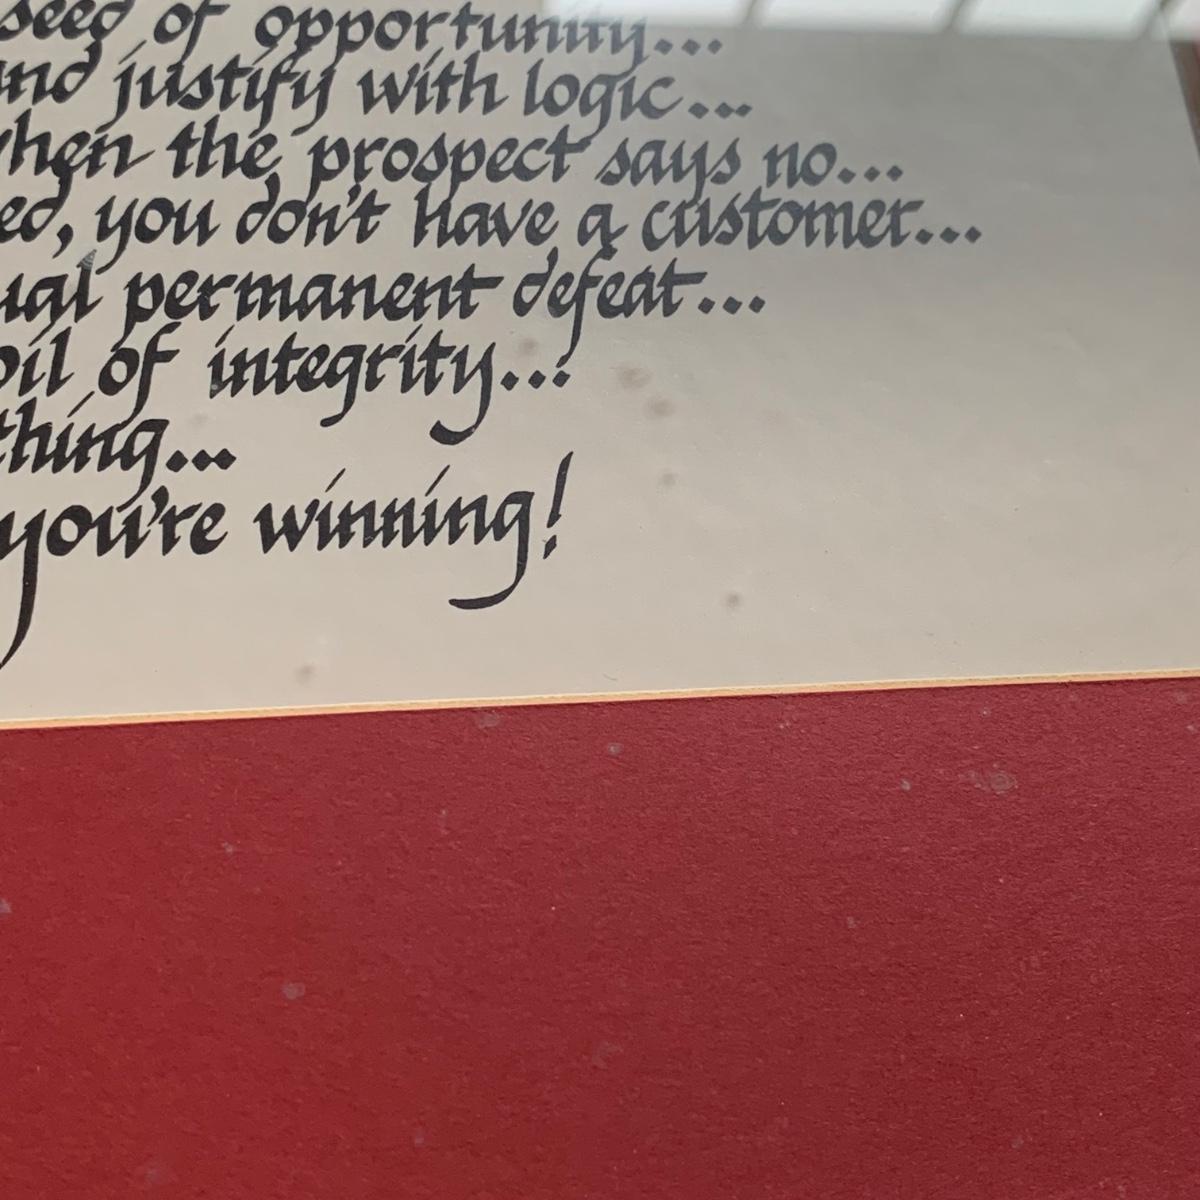 seed of opportunity...
and justify with logic...
when the prospect says no...
ed, you don't have a customer...
ual permanent defeat...
oil of integrity...
thing...
you're winning!